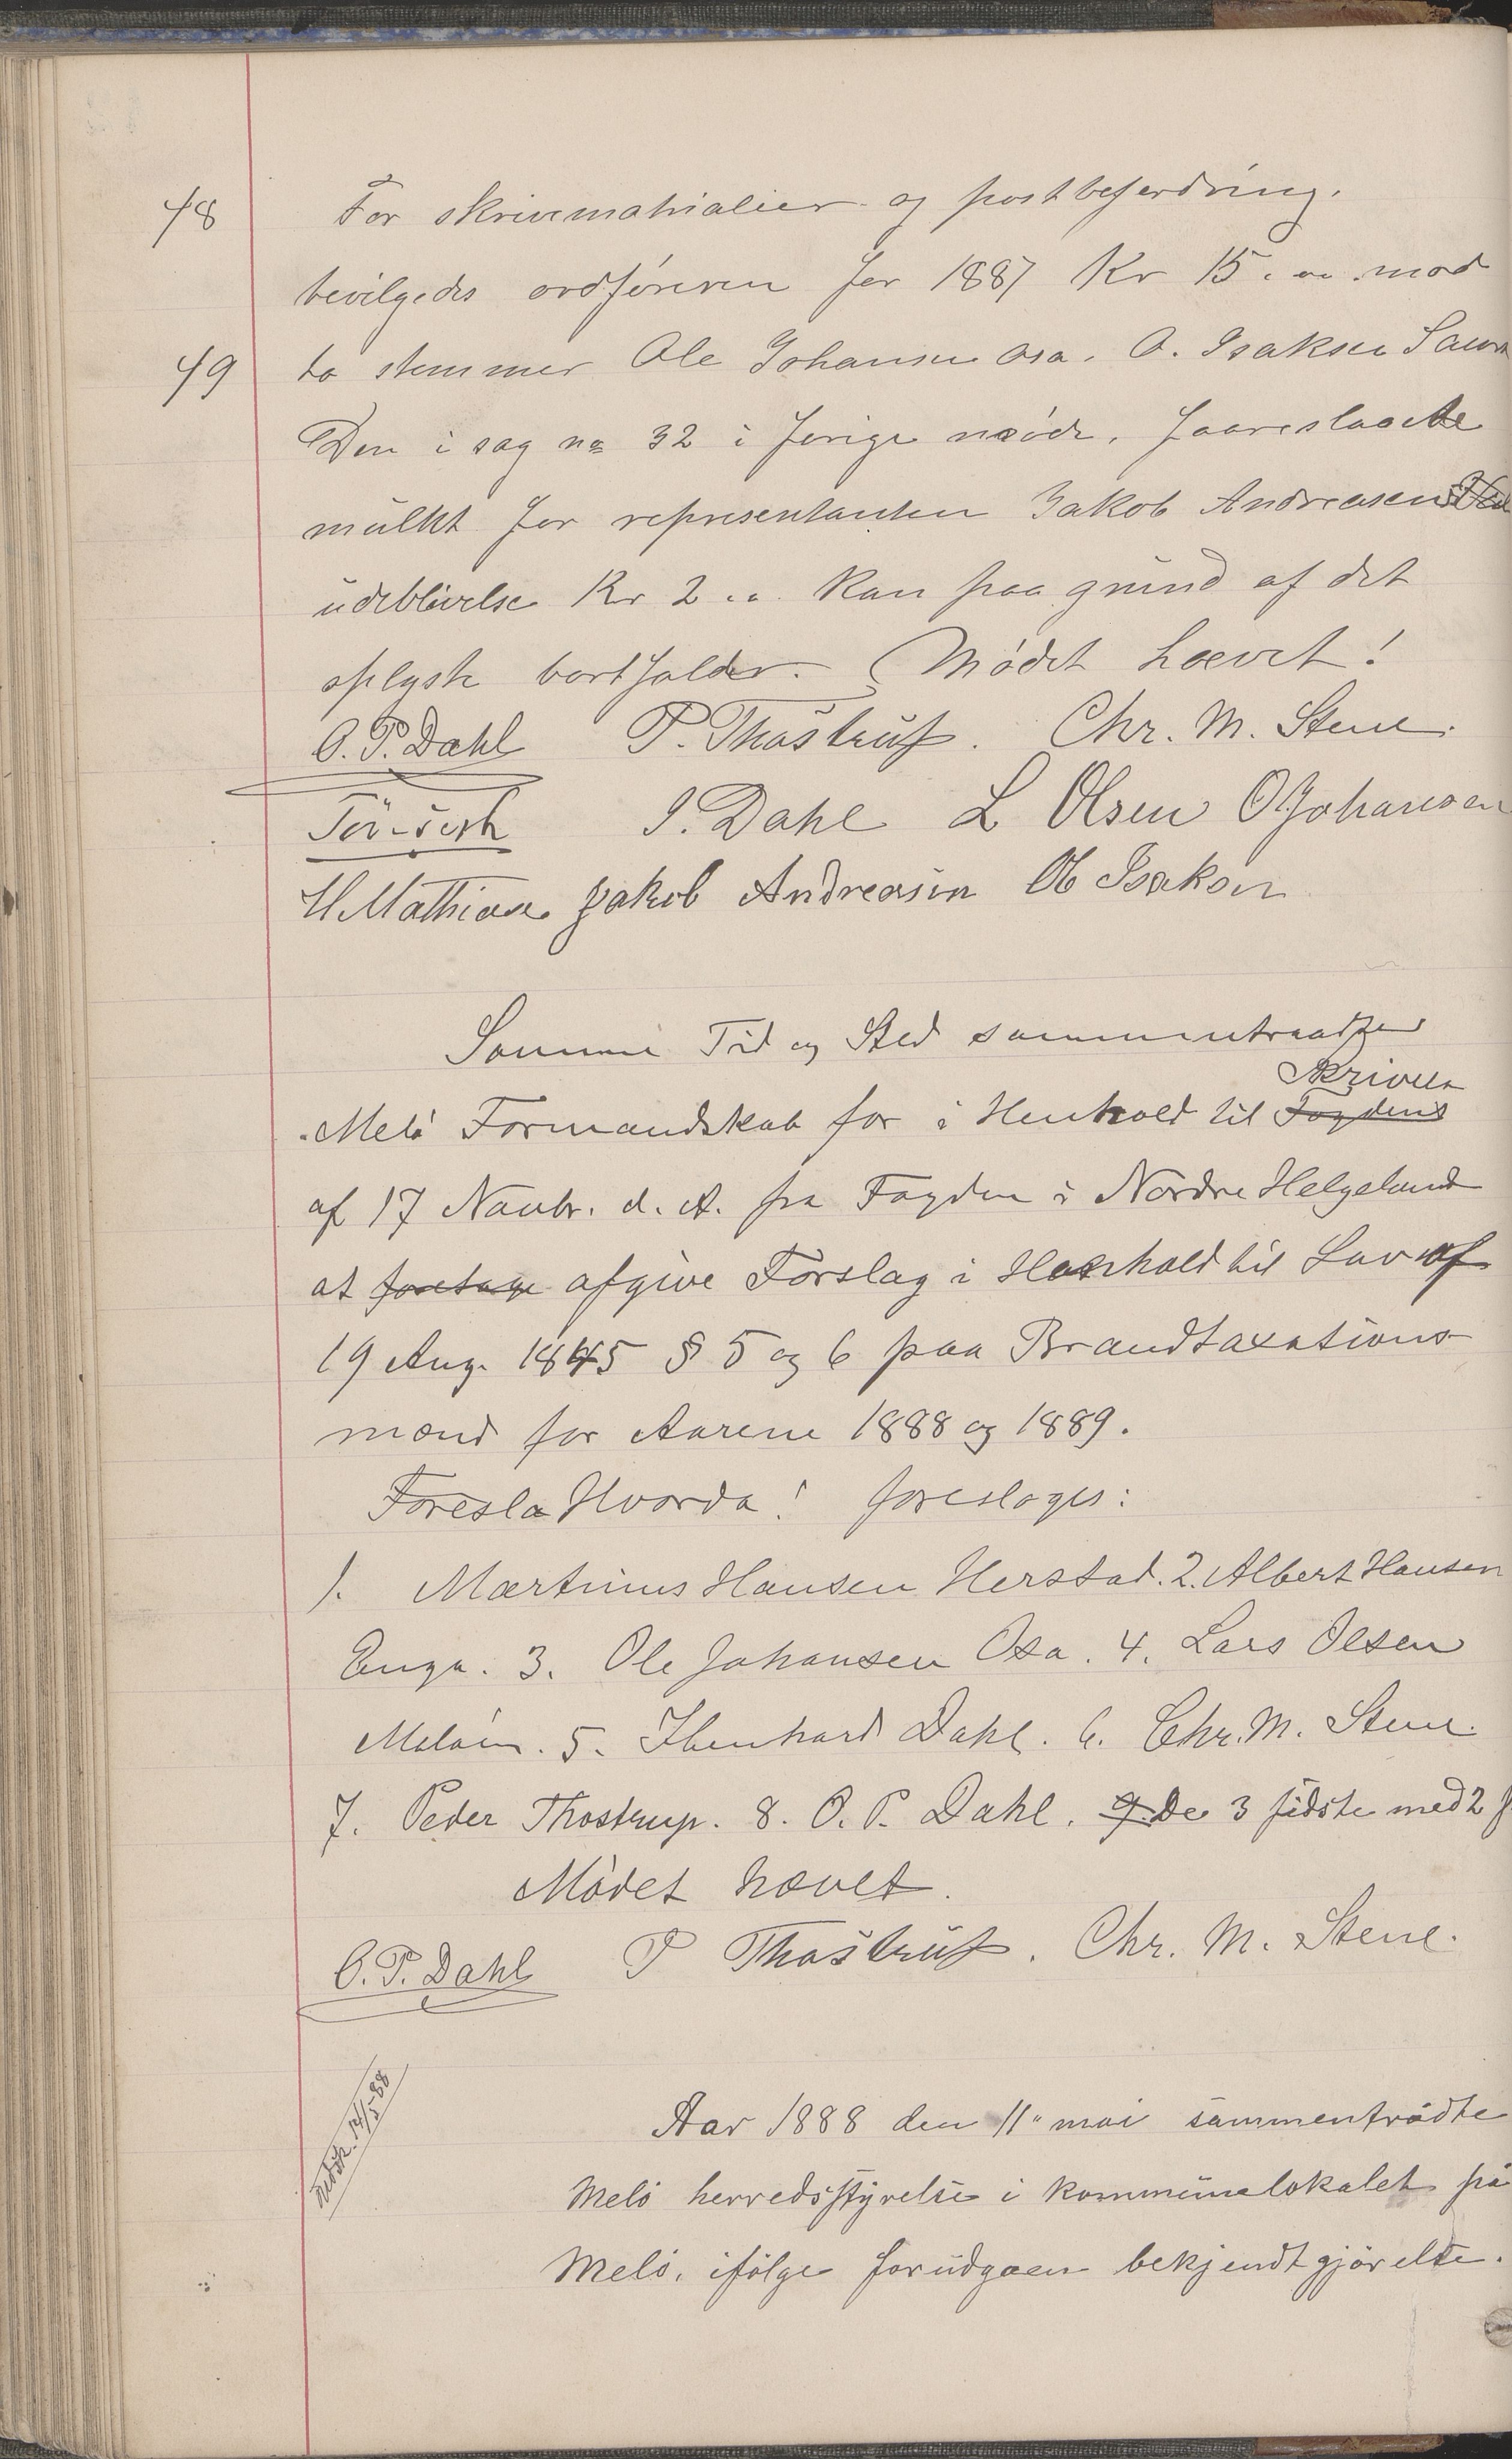 48 For skrivematrialier og postbefordring.
bevilgedes ordføreren for 1887 Kr 15.00 mod
49 to stemmer Ole Johansen Osa. O. Isaksen
Den i sag no 32 i forige møde, foareslaaede
mulkt for representanten Jakob Andreasens
udeblivelse Kr 2.00. kan paa grund af det
oplyste bortfalder. Mødet hævet!
O. P. Dahl P. Thostrup. Chr. M. Stene.
I. Dahl L Olsen O Johansen
H Mathiase Jakob Andreasen Ol Isaksen
Samme Tid og Sted sammentraadte
Skrivelse
Melø Formandskab for i Henhold til Fogdens
af 17 Novbr. d. A. fra Fogden i Nordre Helgeland
at foretage afgive Forslag i Henhold til Lov af
19 Aug. 1845 § 5 og 6 paa Brandtaxations
mænd for Aarene 1888 og 1889.
Foresla Hvorda! foresloges:
1. Martinus Hansen Herstad. 2. Albert Hansen
Enga. 3. Ole Johansen Osa. 4. Lars Olsen
Meløen. 5. Ibenhard Dahl. 6. Chr. M. Stene.
7. Peder Thostrup. 8. O. P. Dahl. 9. De 3 sidste med 2
Mødet hævet.
O. P. Dahl P Thostrup. Chr. M. Stene.
Aar 1888 den 11" mai sammentrådte
Melø herredsstyrelse i kommunelokalet på
Melø, ifølge forudgaaen bekjendtgjørelse.